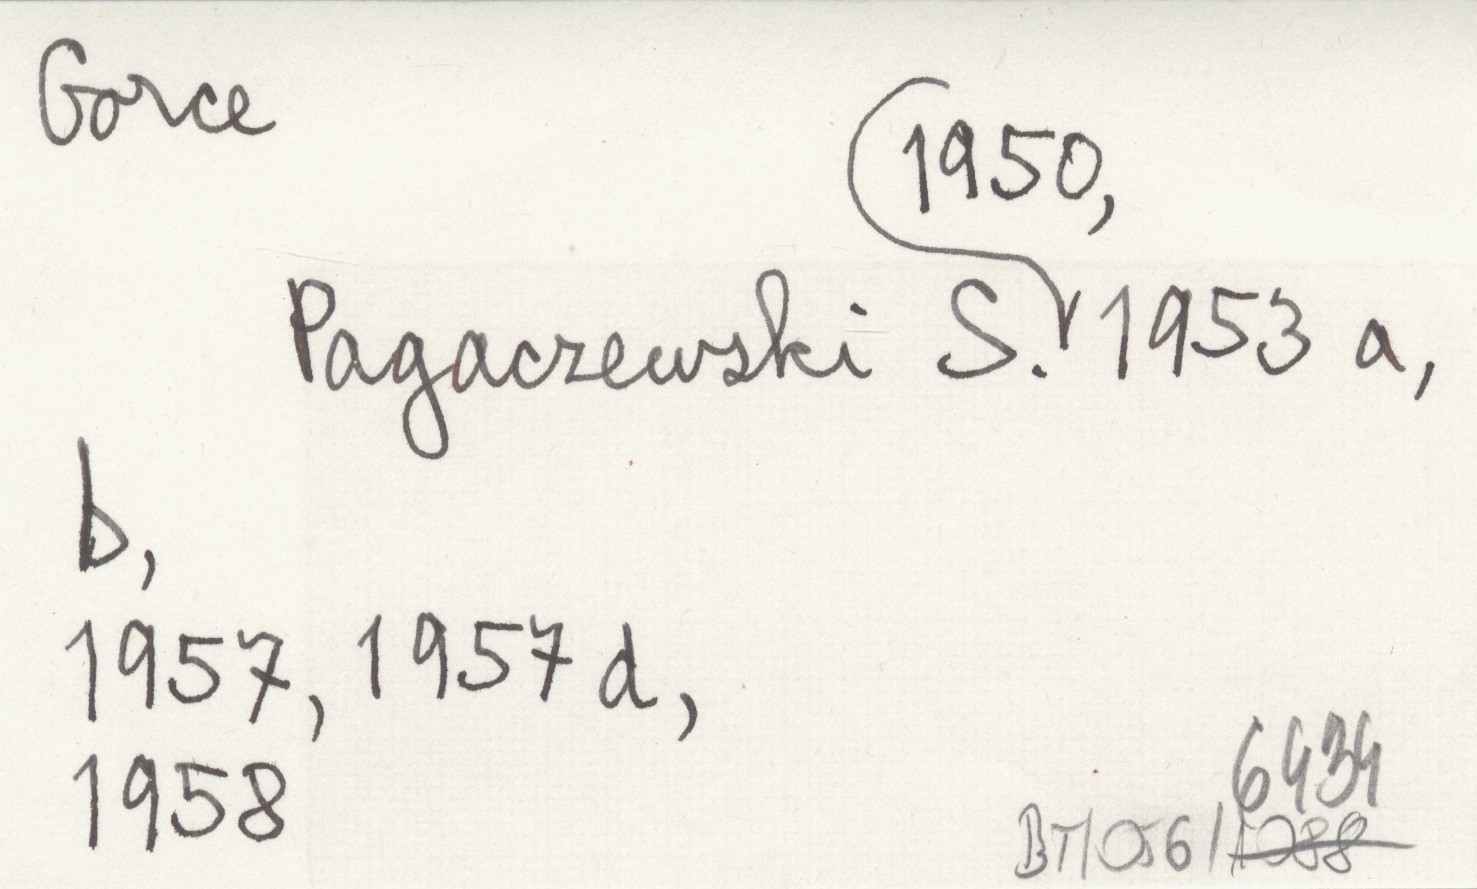 Gorce
1950,
Pagaczewski S. 1953 a,
b,
1957, 1957 d,
1958
6434
BT/056/1088